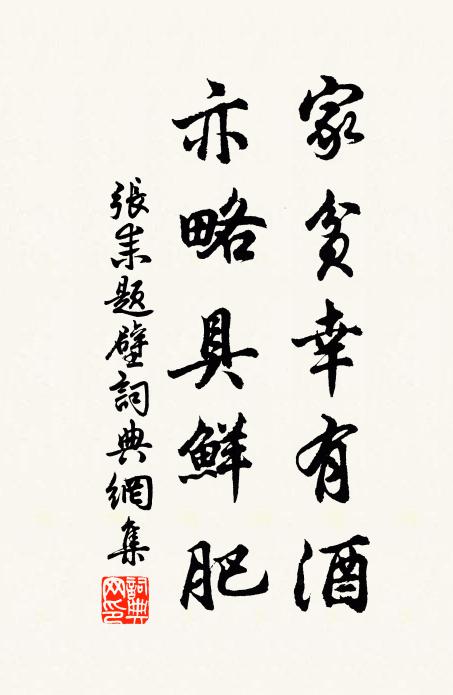 家貧幸有酒
亦略具鮮肥
張耒題壁詞典網集
詞典網印